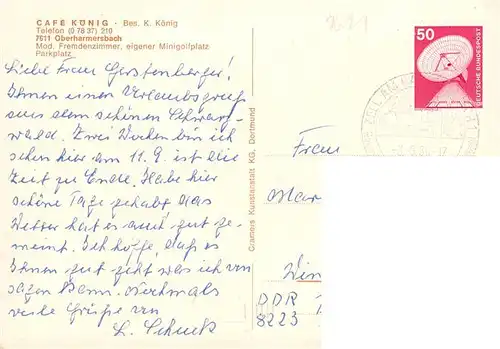 CAFÉ KÖNIG · Bes. K. König
Telefon (0 78 37) 210
7611 Oberharmersbach
Mod. Fremdenzimmer, eigener Minigolfplatz
Parkplatz
Liebe Frau Gerstenberger!
Ihnen einen Urlaubsgruß
aus dem schönen Schwarz-
wald. Zwei Wochen bin ich
schon hier am 11.9. ist die
Zeit zu Ende. Habe hier
schöne Tage gehabt, das
Wetter hat es auch gut ge-
meint. Ich hoffe, daß es
Ihnen gut geht was ich von
sagen kann. Nochmals
viele Grüße von
L. Schuck
Cramers Kunstanstalt KG, Dortmund
50
DEUTSCHE BUNDESPOST
Frau
Mar
Win
DDR
8223